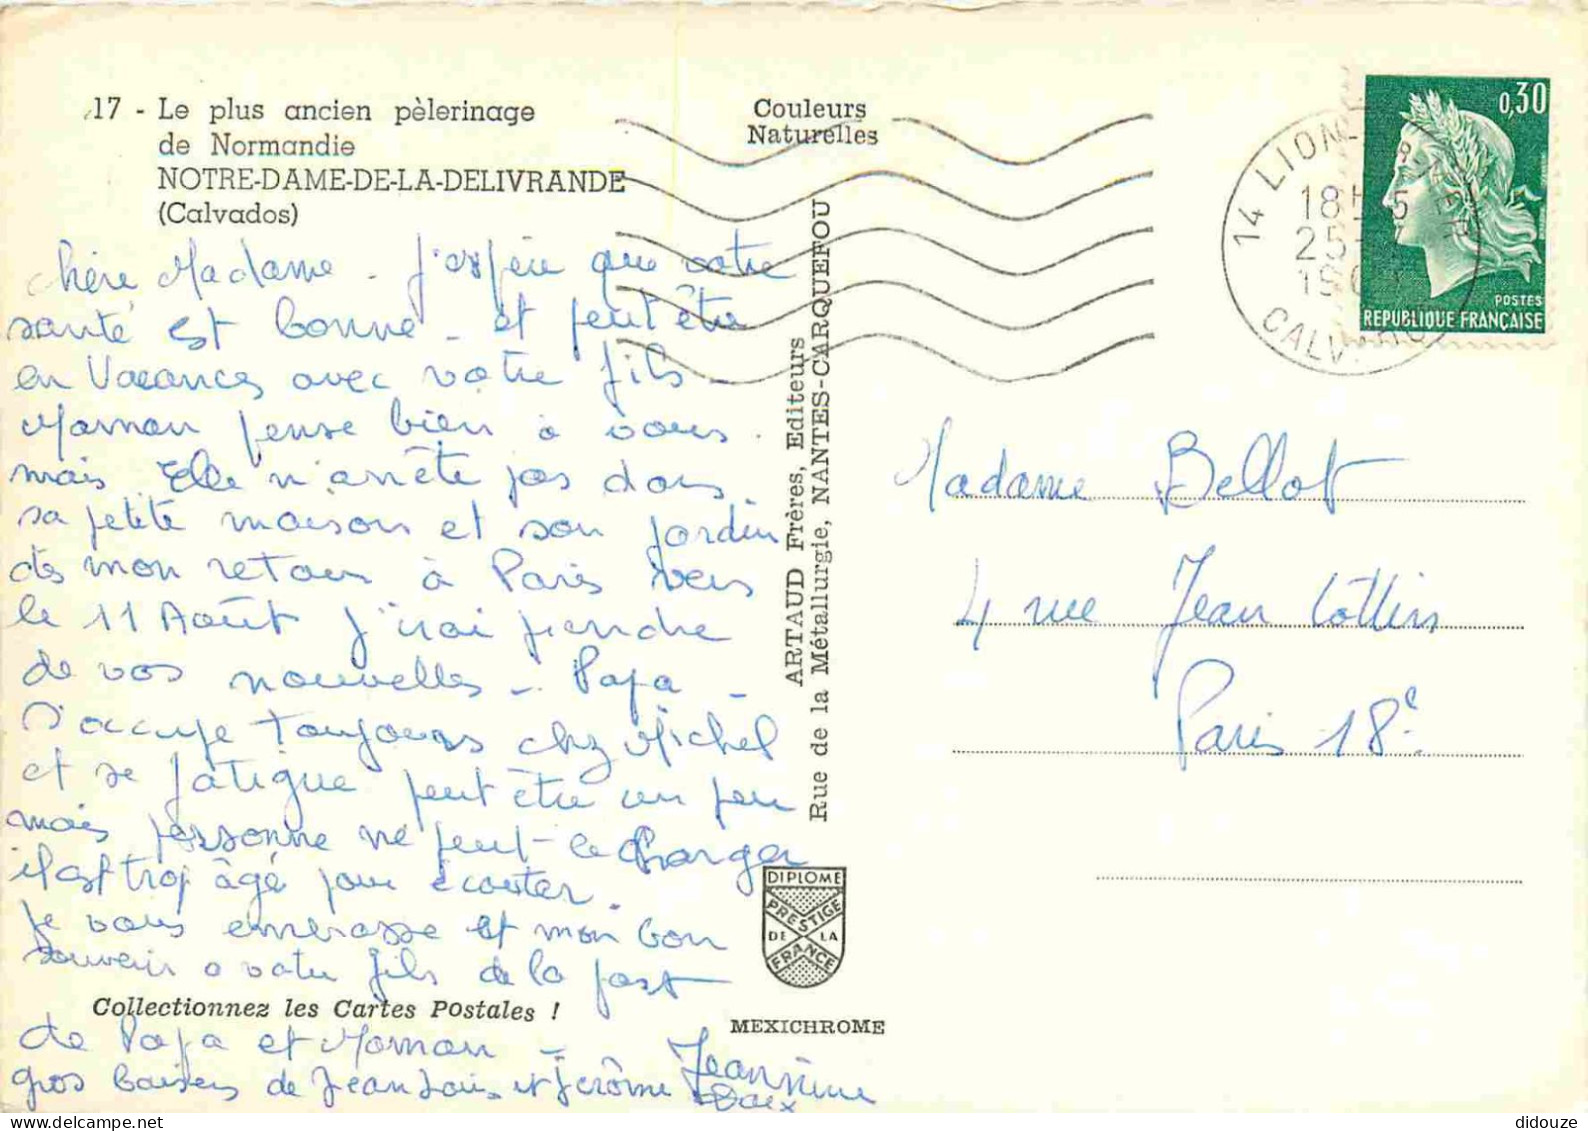 17 - Le plus ancien pèlerinage
de Normandie
NOTRE-DAME-DE-LA-DELIVRANDE
(Calvados)
Couleurs
Naturelles
0,30
POSTES
REPUBLIQUE FRANÇAISE
14 LION
18H
25
CALV
chère Madame - J'espère que votre
santé est bonne - et peut être
en Vacances avec votre fils
Maman pense bien à vous.
mais Elle n'arrête pas dans
sa petite maison et son jardin
dès mon retour à Paris vers
le 11 Août J'irai prendre
de vos nouvelles - Papa -
s'occupe toujours chez Michel
et se fatigue peut être un peu
mais personne ne peut le changer
il est trop âgé pour écouter.
je vous embrasse et mon bon
souvenir a votre fils de la part
de Papa et Maman -
gros baisers de Jean Louis et Jérôme Jeannine
Collectionnez les Cartes Postales !
ARTAUD Frères, Editeurs
Rue de la Métallurgie, NANTES-CARQUEFOU
DIPLOME
PRESTIGE
DE LA
FRANCE
MEXICHROME
Madame Bellot
4 rue Jean Cottin
Paris 18e
didouze